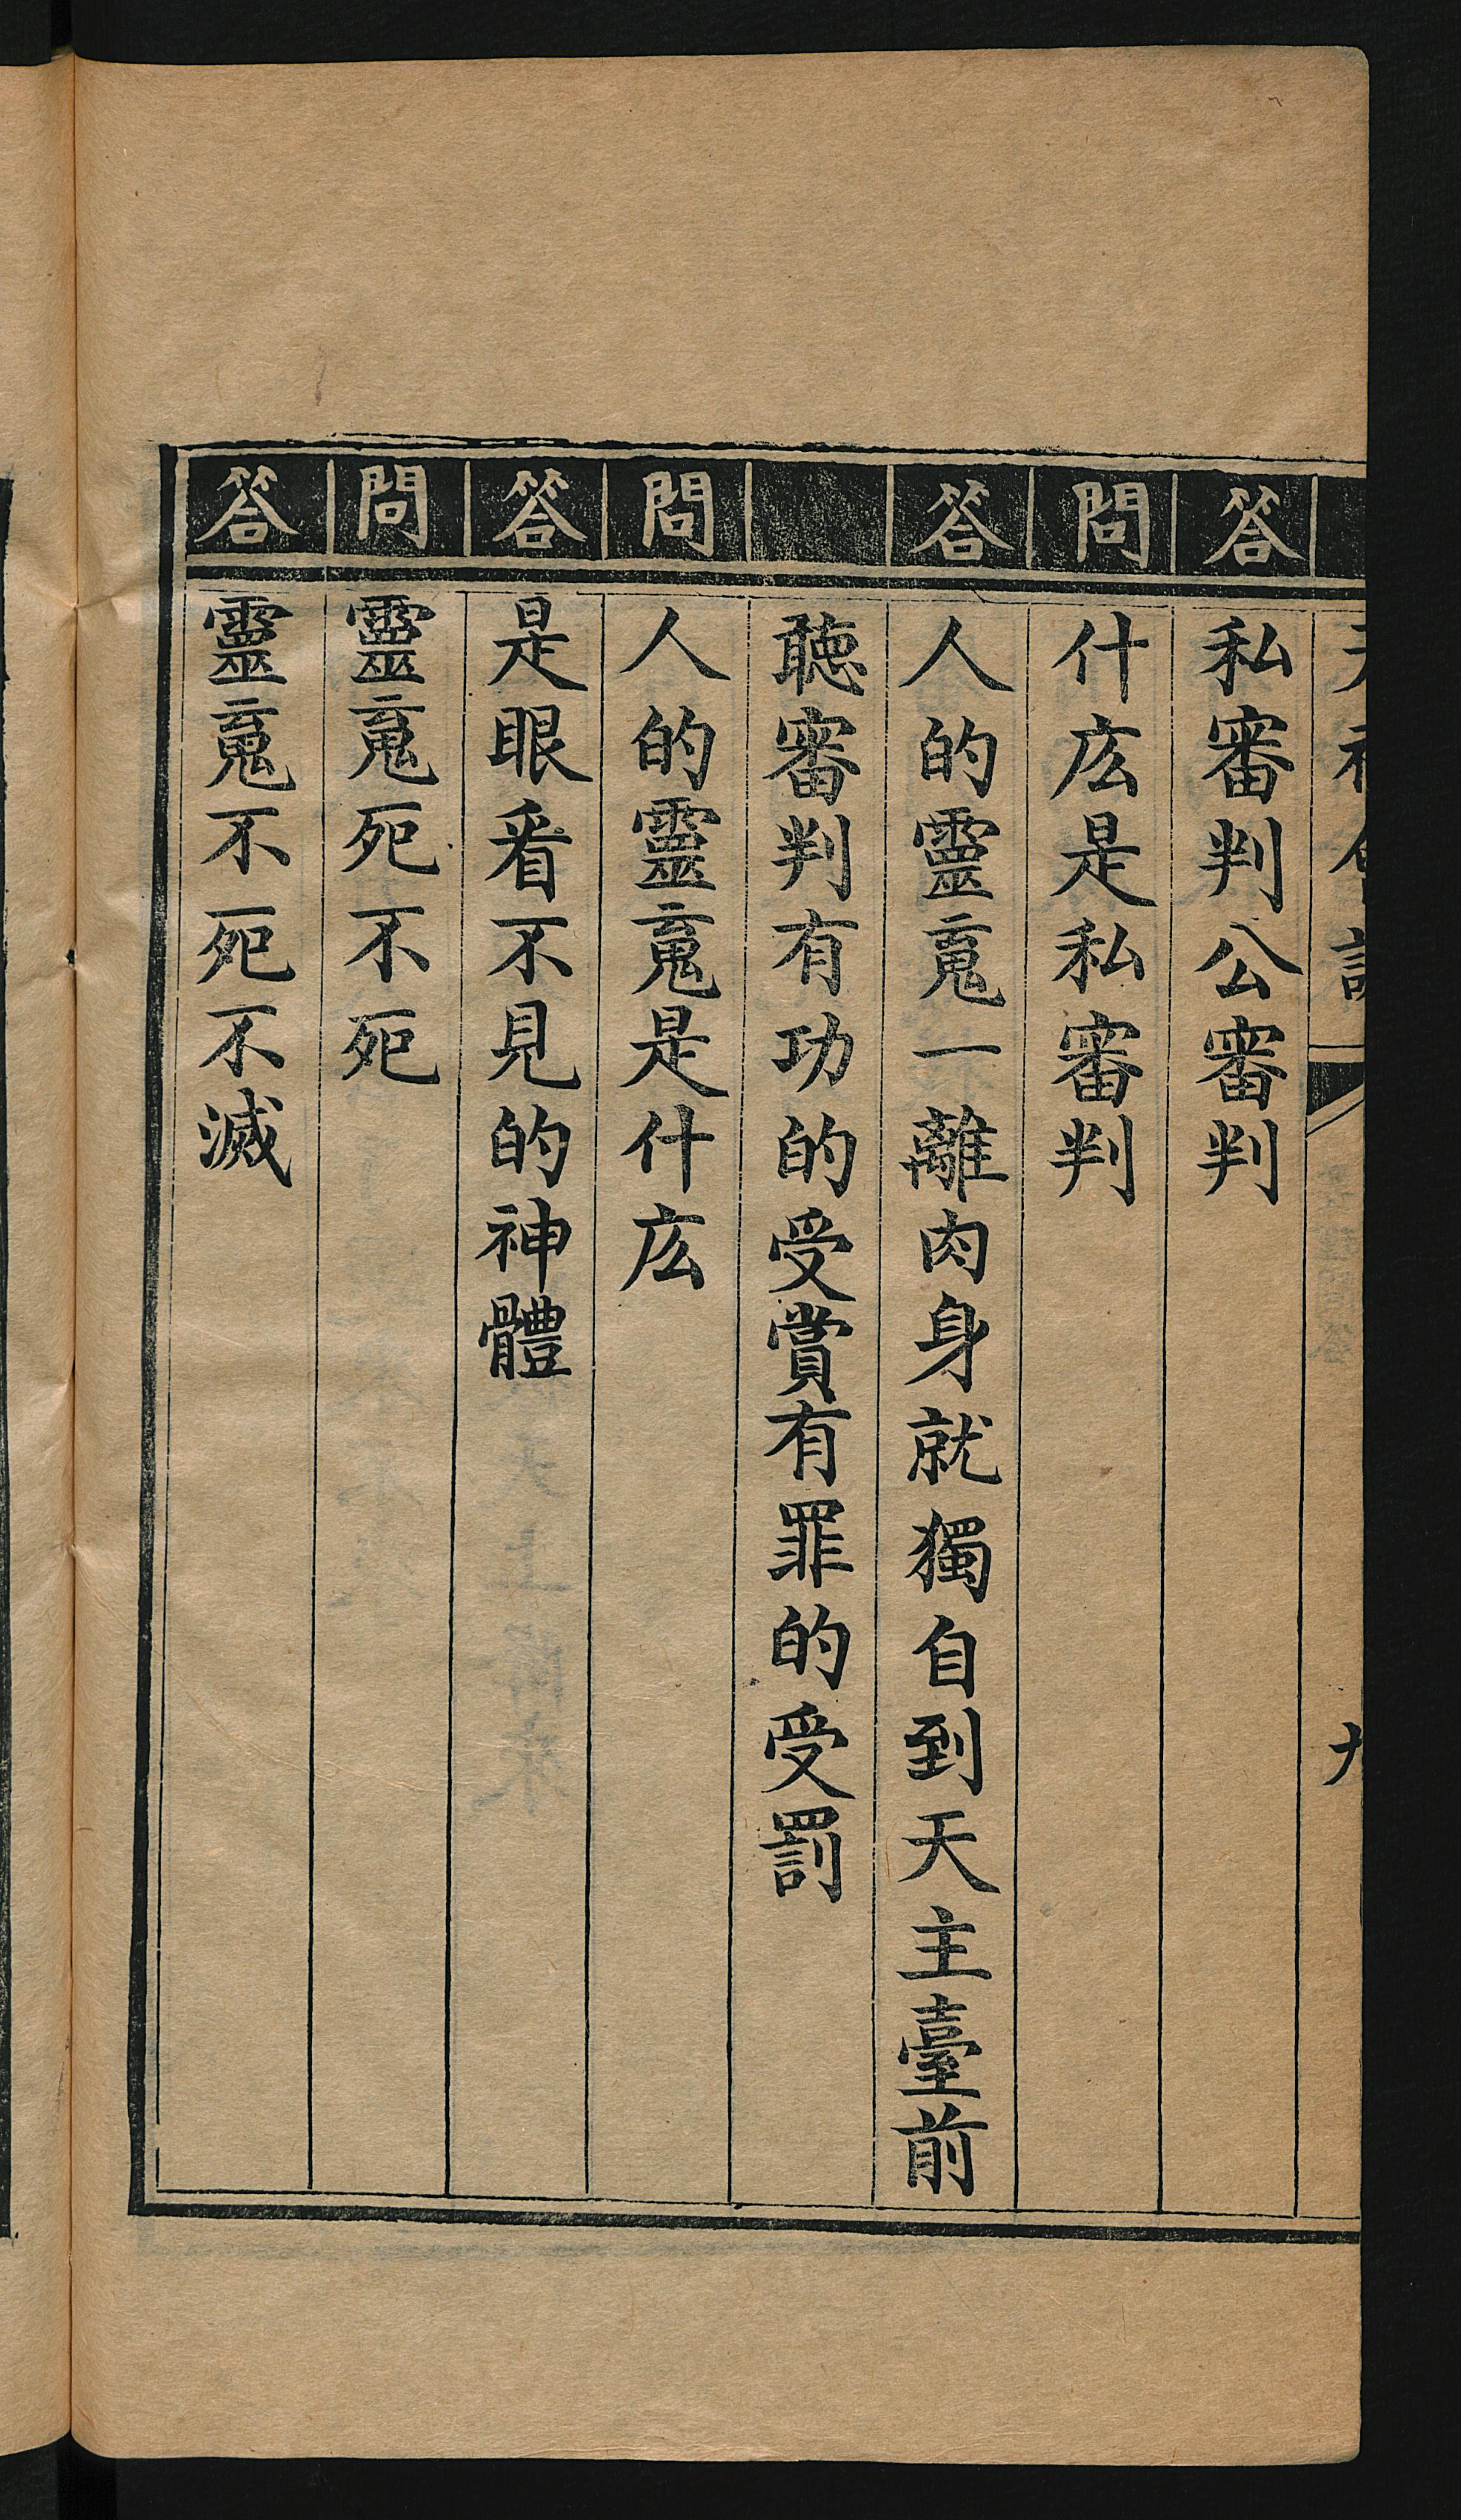 答 私審判公審判
問 什庅是私審判
答 人的靈䰟一離肉身就獨自到天主臺前
聽審判有功的受賞有罪的受罰
問 人的靈䰟是什庅
答 是眼看不見的神體
問 靈䰟死不死
答 靈䰟不死不滅